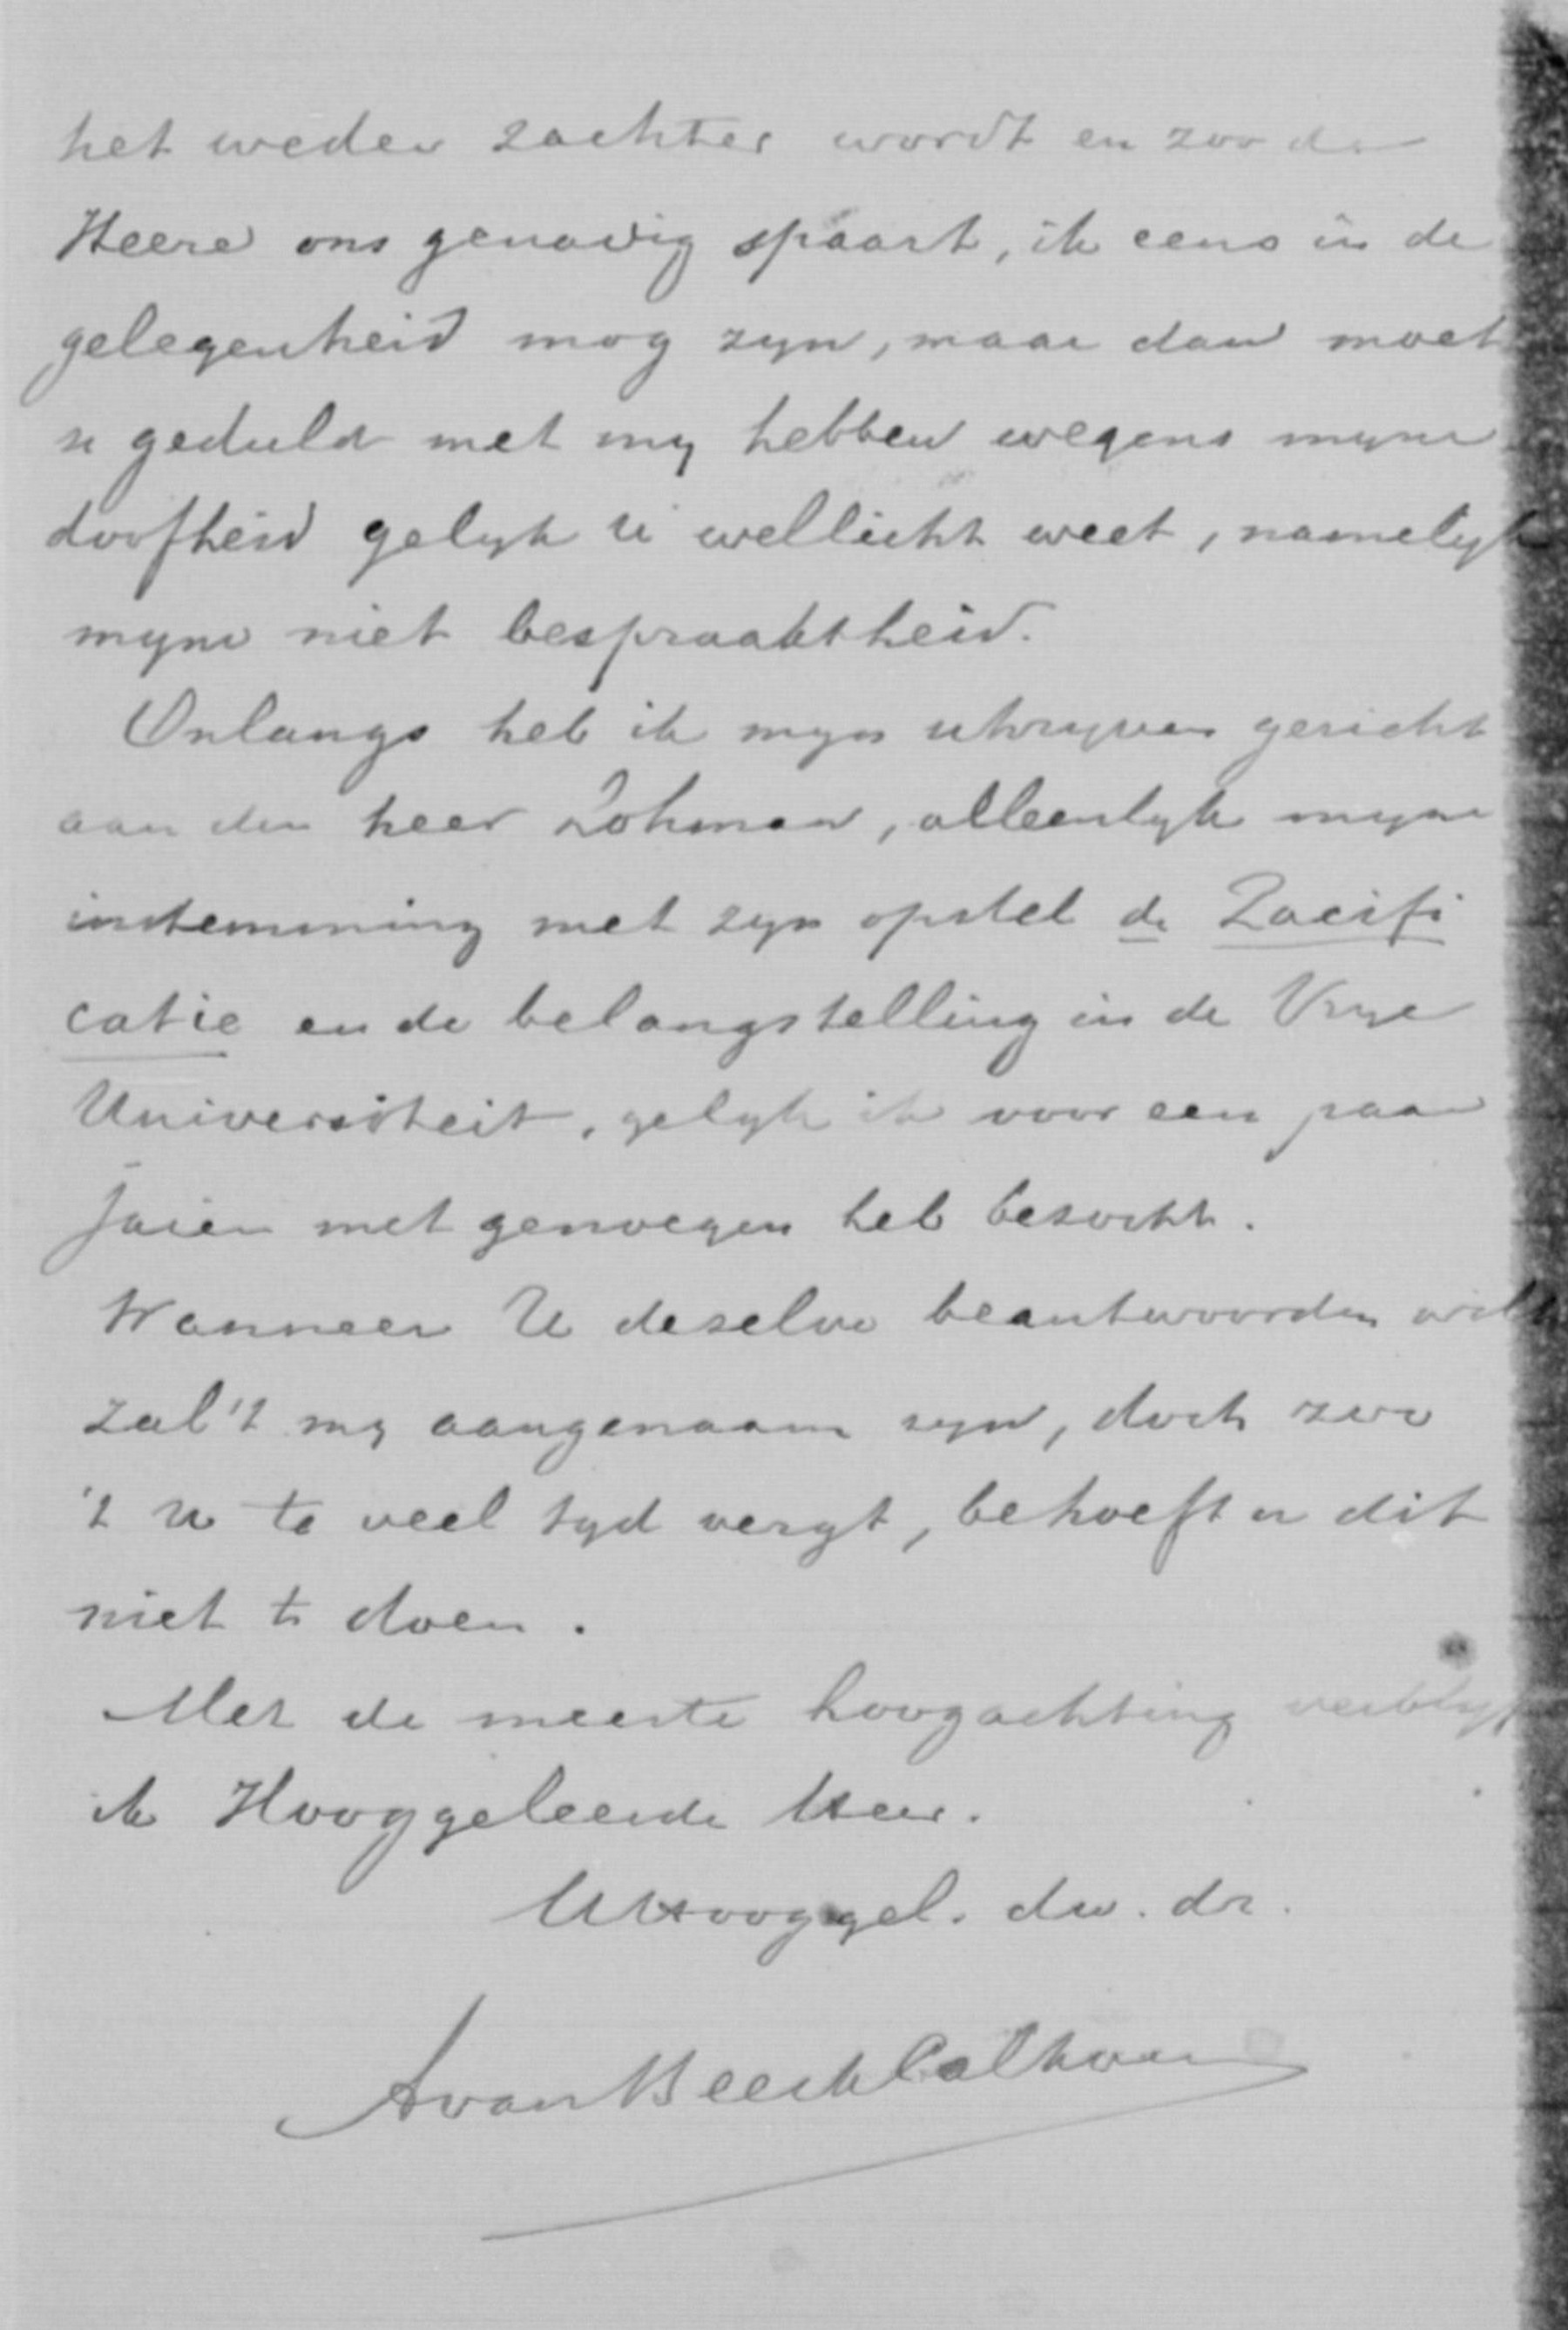 het weder zachter wordt en zoo de
Heere ons genadig spaart, ik eens in de
gelegenheid mog zyn, maar dan moet
u geduld met my hebben wegens myne
doofheid gelyk U wellicht weet, namelyk
myne niet bespraaktheid.
Onlangs heb ik myn schryven gericht
aan den heer Lohman, alleenlyk myne
instemming met zyn opstel de Pacifi
catie en de belangstelling in de Vrye
Universiteit, gelyk ik voor een paar
jaren met genoegen heb bezocht.
Wanneer U dezelve beantwoorden wilt
zal 't my aangenaam zyn, doch zoo
't U te veel tyd vergt, behoeft u dit
niet te doen.
Met de meeste hoogachting verblyf
ik Hooggeleerde Heer.
UHooggel. dw. dr.
A van Beeck Calkoen